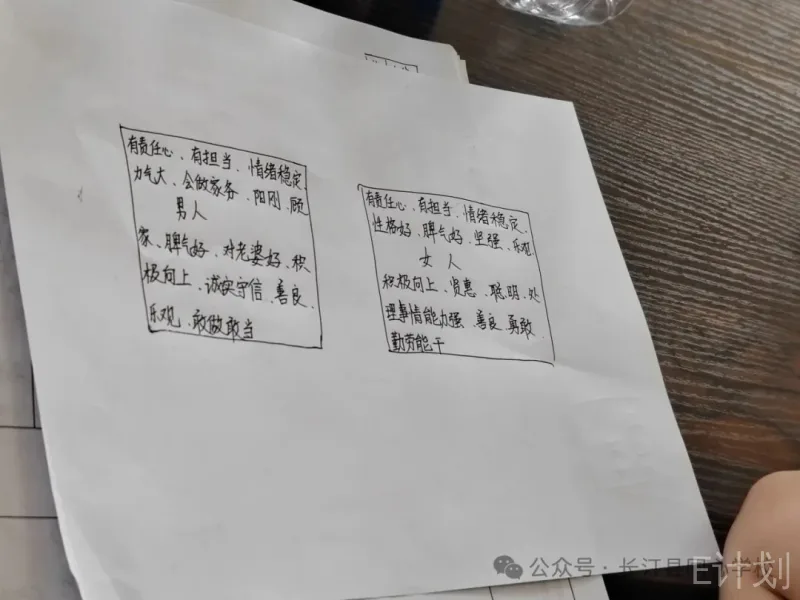 有责任心、有担当、情绪稳定、
力气大、会做家务、阳刚、顾
男人
家、脾气好、对老婆好、积
极向上、诚实守信、善良、
乐观、敢做敢当
有责任心、有担当、情绪稳定、
性格好、脾气好、坚强、乐观
女人
积极向上、贤惠、聪明、处
理事情能力强、善良、勇敢、
勤劳能干
公众号·长江
E计划